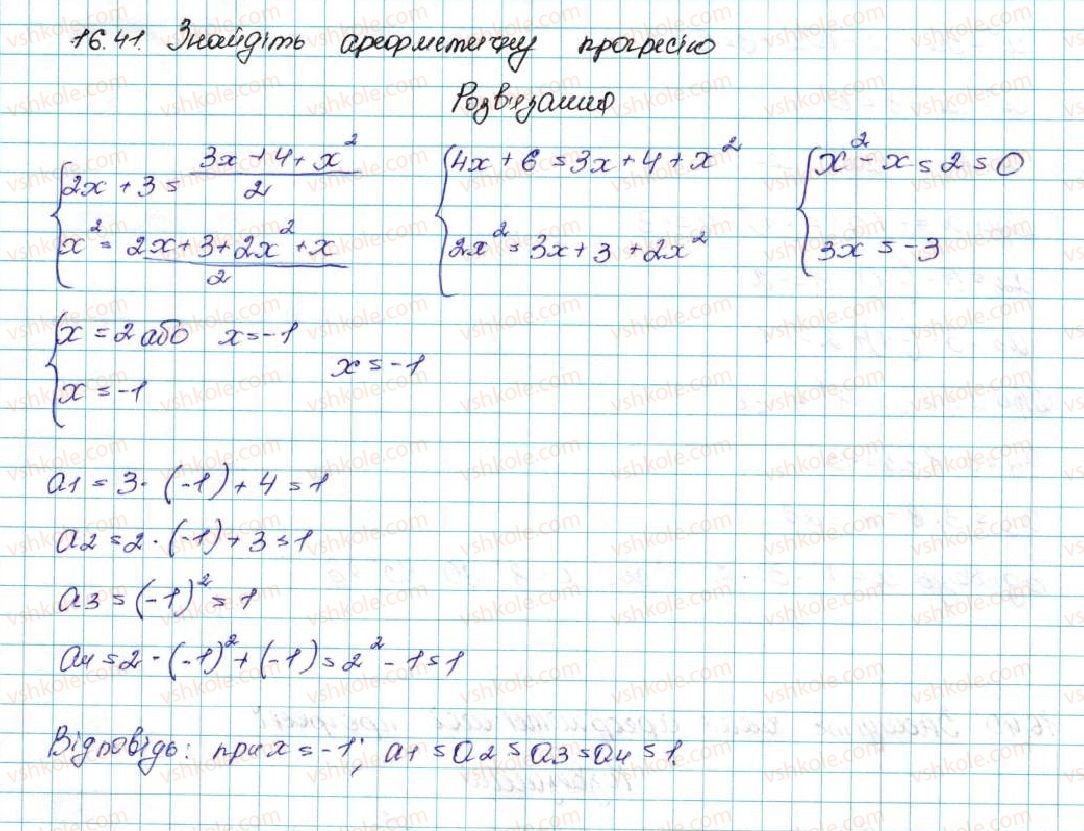 16.41. Знайдіть арефметичну прогресію
Розвязання
{2x + 3 = (3x + 4 + x²)/2 {4x + 6 = 3x + 4 + x² {x² - x = 2 = 0
x² = (2x + 3 + 2x² + x)/2 2x² = 3x + 3 + 2x² 3x = -3
{x = 2 або x = -1
x = -1 x = -1
a1 = 3 · (-1) + 4 = 1
a2 = 2 · (-1) + 3 = 1
a3 = (-1)² = 1
a4 = 2 · (-1)² + (-1) = 2² - 1 = 1
Відповідь: при x = -1; a1 = a2 = a3 = a4 = 1.